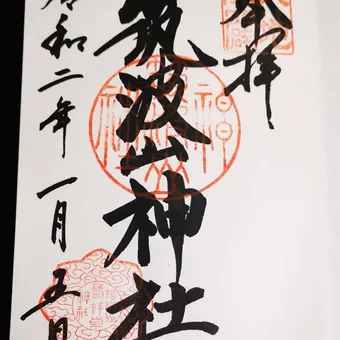 奉拝
筑波山神社
令和二年一月五日